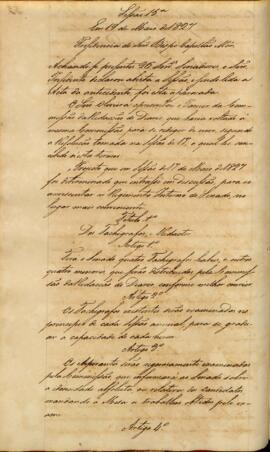 Sessão 15ª
Em 19 de Maio de 1827
Presidencia do Senr Bispo Capellão Mór.
Achando-se presentes 26 Senrs Senadores, o Senr
Presidente declarou aberta a Sessão; e sendo lida a
Acta da antecedente foi ella approvada
apresentou o Parecer da Com-
missão da Redacção do Diario, que havia voltado á
mesma Commissão para se redigir de novo, segundo
a Resolução tomada na Sessão de 17, o qual he con-
cebido nestes termos
Projecto que em Sessão de 17 de Maio de 1827
foi determinado que entrasse em discussão, para se
accrescentar ao Regimento Interno do Senado, no
lugar mais conveniente.
Titulo 1º
Dos Tachigrafos, e Redactor
Artigo 1º
Terá o Senado quatro Tachigrafos habeis, e outros
quatro menores, que serão distribuidos pela Commissão
da Redacção do Diario conforme melhor convier
Artigo 2º
Os Tachigrafos existentes serão examinados no
principio de cada Sessão annual, para se gradu-
ar a capacidade de cada hum
Artigo 3º
Os Aspirantes serão rigorosamente examinados
pela Commissão, que informará ao Senado sobre
a idoneidade absoluta, ou relativa do candidato
mandando á Mesa os trabalhos feitos pelo ex-
ame.
Artigo 4º